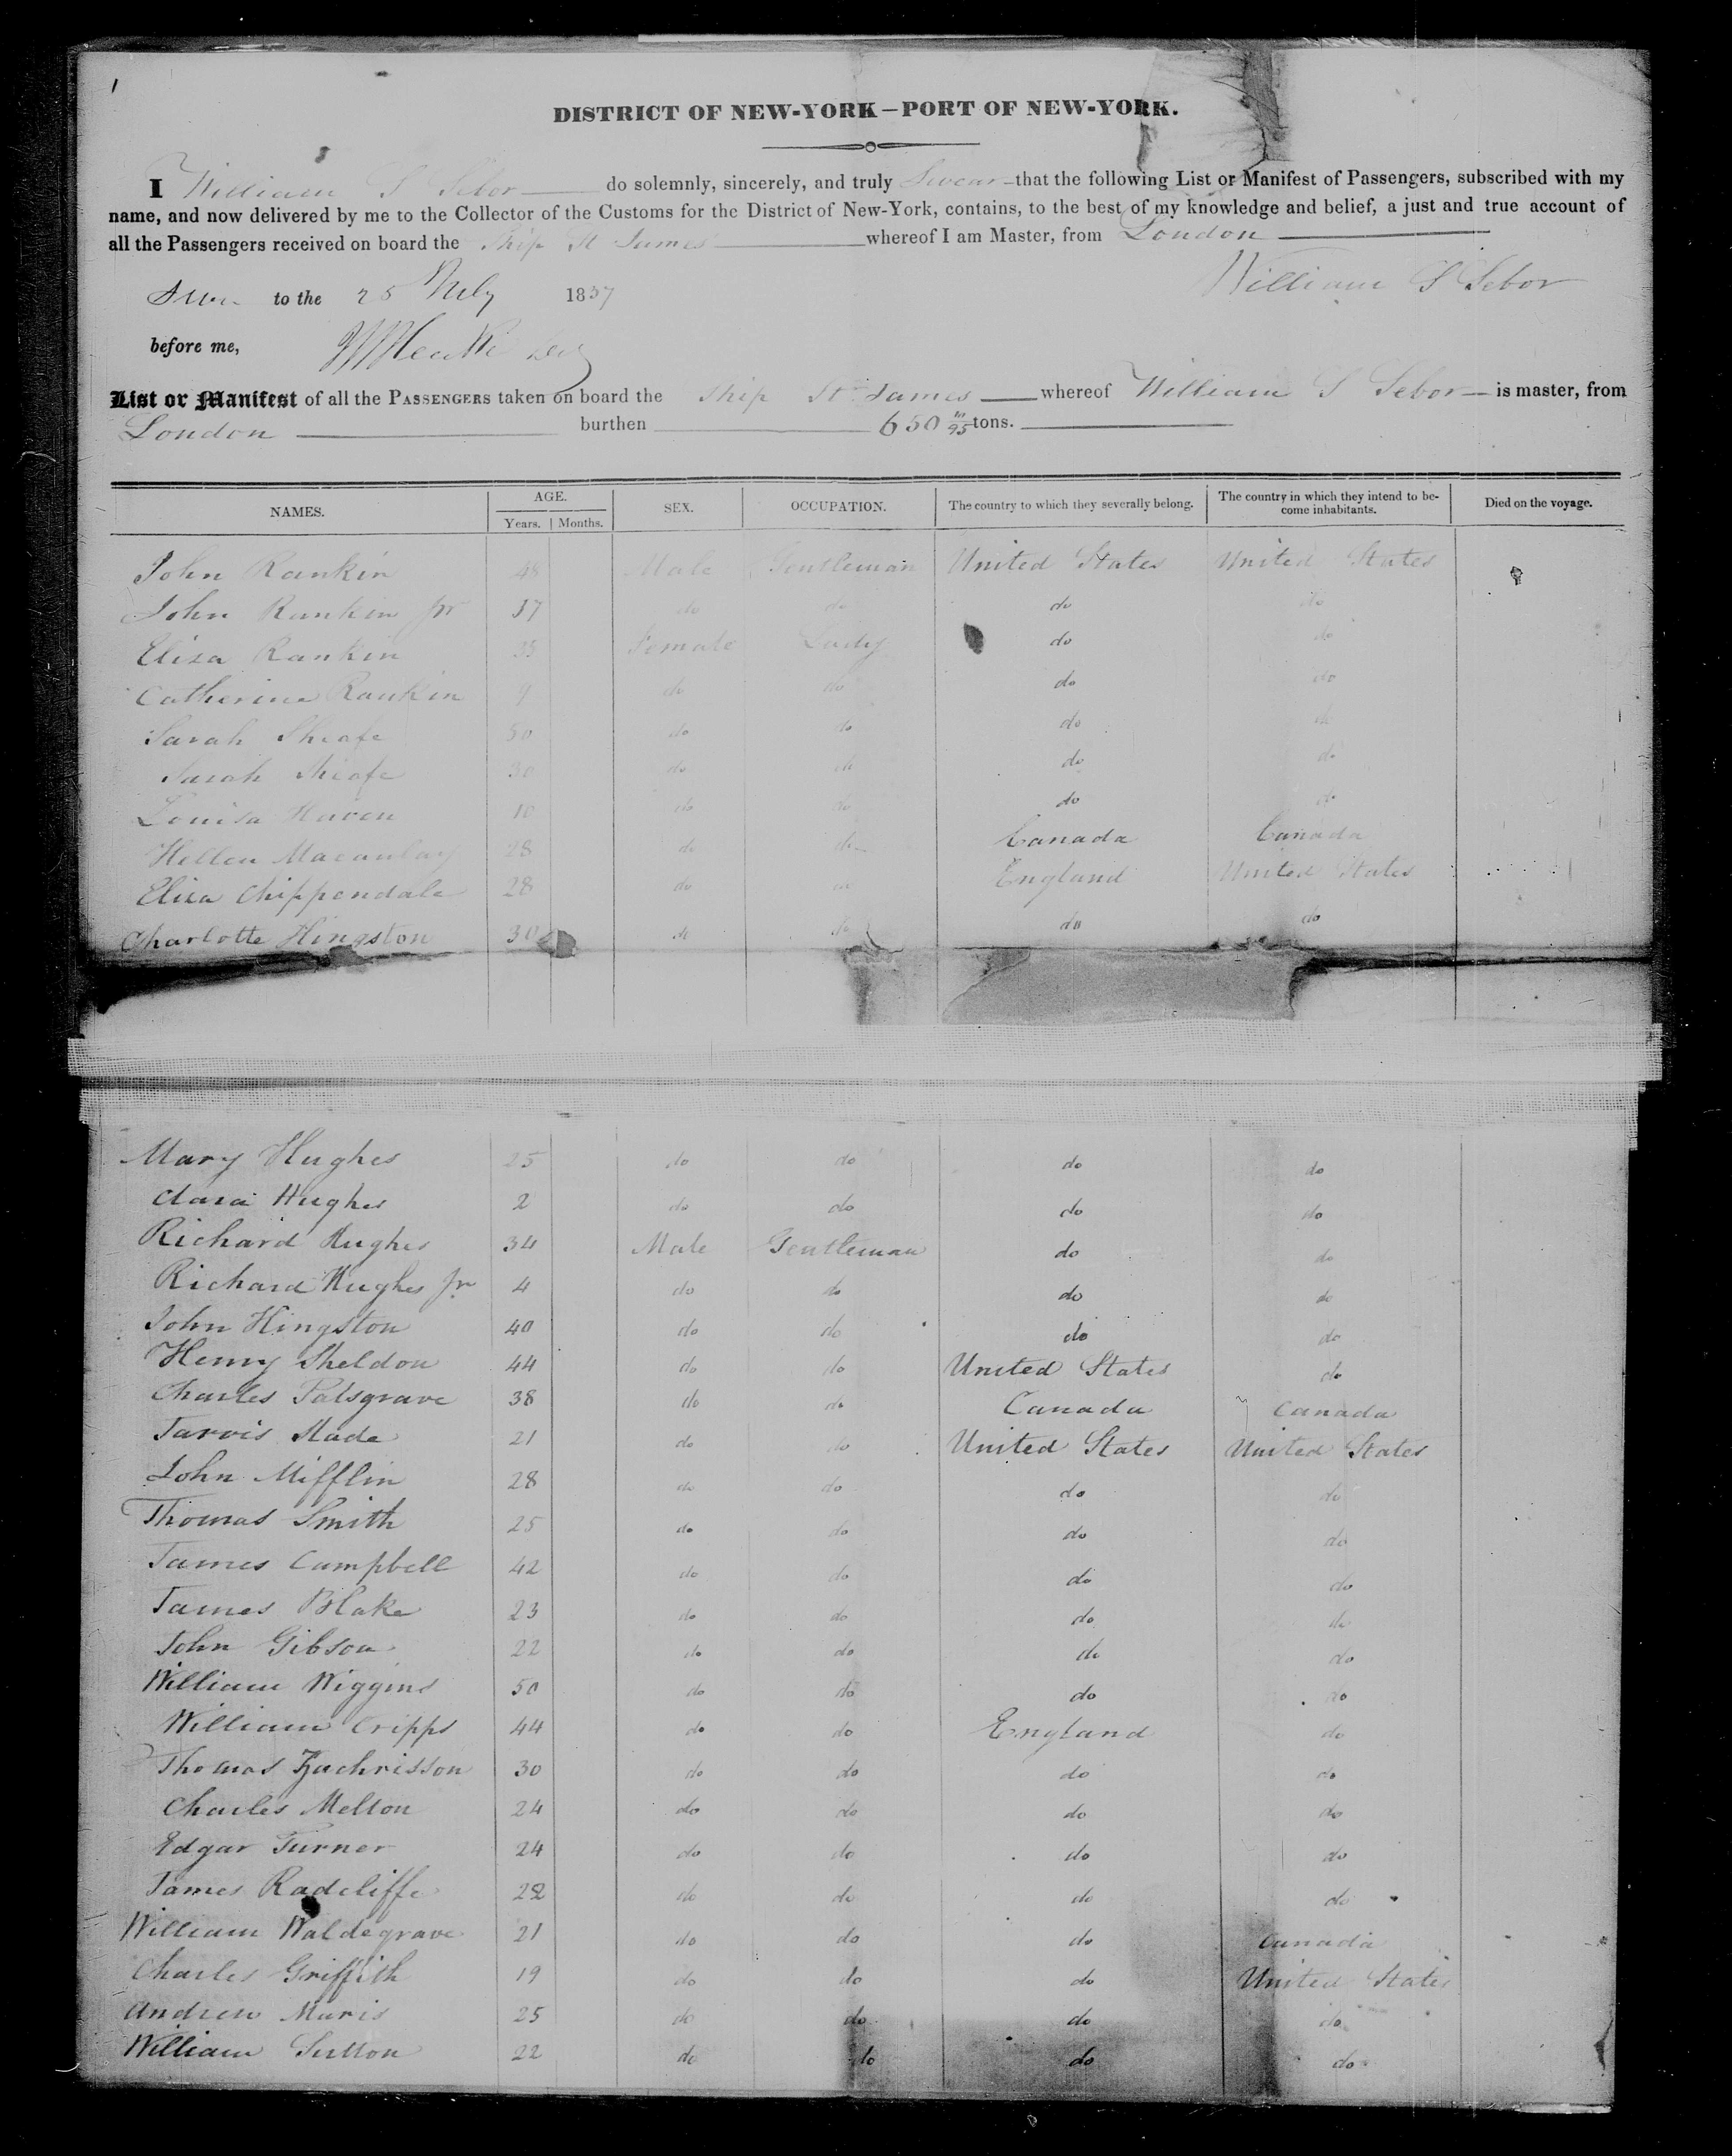 DISTRICT OF NEW-YORK—PORT OF NEW-YORK.
I William S Sebor do solemnly, sincerely, and truly Swear that the following List or Manifest of Passengers, subscribed with my
name, and now delivered by me to the Collector of the Customs for the District of New-York, contains, to the best of my knowledge and belief, a just and true account of
all the Passengers received on board the Ship St James whereof I am Master, from London
William S Sebor
to the 25 July 1837
before me,
List or Manifest of all the PASSENGERS taken on board the Ship St James whereof William S Sebor is master, from
London burthen 650 /95 tons.
NAMES. AGE. SEX. OCCUPATION. The country to which they severally belong. The country in which they intend to be- Died on the voyage.
Years. Months. come inhabitants.
John Rankin 48 Male Gentleman United States United States
John Rankin Jr 17 do do do do
Eliza Rankin 35 Female Lady do do
Catherine Rankin 9 do do do do
Sarah Sheafe 50 do do do do
Sarah Sheafe 30 do do do do
Louisa Haven 10 do do do do
Hellen Macaulay 28 do do Canada Canada
Eliza Chippendale 28 do do England United States
Charlotte Hingston 30 do do do do
Mary Hughes 25 do do do do
Clara Hughes 2 do do do do
Richard Hughes 34 Male Gentleman do do
Richard Hughes Jr 4 do do do do
John Hingston 40 do do do do
Henry Sheldon 44 do do United States do
Charles Palsgrave 38 do do Canada Canada
Jarvis Slade 21 do do United States United States
John Mifflin 28 do do do do
Thomas Smith 25 do do do do
James Campbell 42 do do do do
James Blake 23 do do do do
John Gibson 22 do do do do
William Wiggins 50 do do do do
William Cripps 44 do do England do
Thomas Zachrisson 30 do do do do
Charles Melton 24 do do do do
Edgar Turner 24 do do do do
James Radcliffe 22 do do do do
William Waldegrave 21 do do do Canada
Charles Griffith 19 do do do United States
Andrew Maris 25 do do do do
William Sutton 22 do do do do